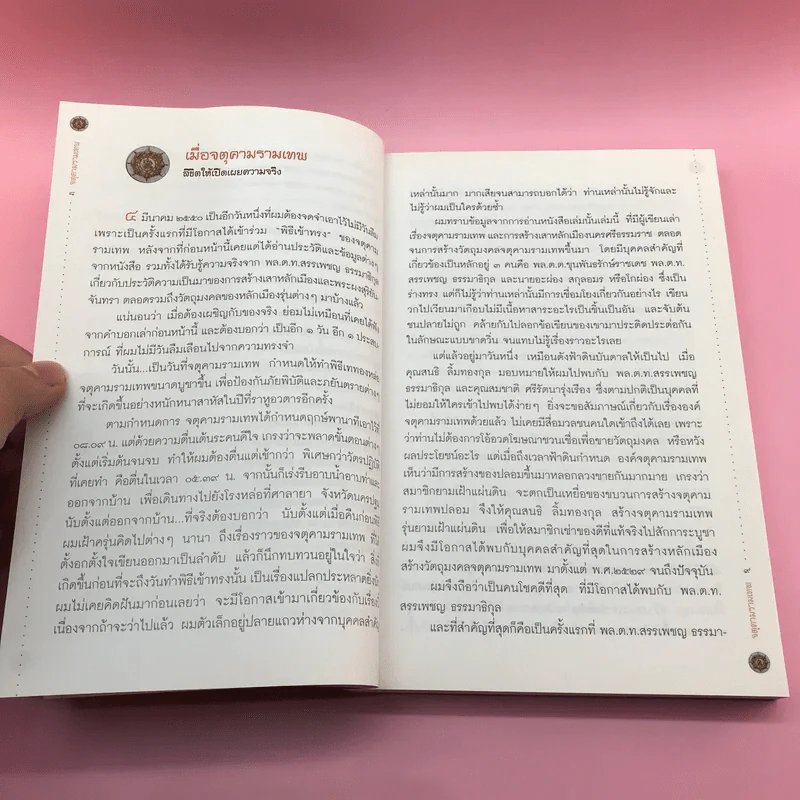 จตุคามรามเทพ
๘
เมื่อจตุคามรามเทพ
ลิขิตให้เปิดเผยความจริง
๔ มีนาคม ๒๕๕๐ เป็นอีกวันหนึ่งที่ผมต้องจดจำเอาไว้ไม่มีวันลืม
เพราะเป็นครั้งแรกที่มีโอกาสได้เข้าร่วม "พิธีเข้าทรง" ของจตุคาม
รามเทพ หลังจากที่ก่อนหน้านี้เคยแต่ได้อ่านประวัติและข้อมูลต่างๆ
จากหนังสือ รวมทั้งได้รับรู้ความจริงจาก พล.ต.ท.สรรเพชญ ธรรมาธิกุล
เกี่ยวกับประวัติความเป็นมาของการสร้างเสาหลักเมืองและพระผงสุริยัน-
จันทรา ตลอดรวมถึงวัตถุมงคลของหลักเมืองรุ่นต่างๆ มาบ้างแล้ว
แน่นอนว่า เมื่อต้องเผชิญกับของจริง ย่อมไม่เหมือนที่เคยได้ฟัง
จากคำบอกเล่าก่อนหน้านี้ และต้องบอกว่า เป็นอีก ๑ วัน อีก ๑ ประสบ-
การณ์ ที่ผมไม่มีวันลืมเลือนไปจากความทรงจำ
วันนั้น...เป็นวันที่จตุคามรามเทพ กำหนดให้ทำพิธีเททองหล่อ
จตุคามรามเทพขนาดบูชาขึ้น เพื่อป้องกันภัยพิบัติและภยันตรายต่างๆ
ที่จะเกิดขึ้นอย่างหนักหนาสาหัสในปีที่ราหูอวตารอีกครั้ง
ตามกำหนดการ จตุคามรามเทพได้กำหนดฤกษ์พานาทีเอาไว้ที่
๐๘.๐๙ น. แต่ด้วยความตื่นเต้นระคนดีใจ เกรงว่าจะพลาดขั้นตอนต่างๆ
ตั้งแต่เริ่มต้นจนจบ ทำให้ผมต้องตื่นแต่เช้ากว่า พิเศษกว่าวัตรปฏิบัติ
ที่เคยทำ คือตื่นในเวลา ๐๕.๓๙ น. จากนั้นก็เร่งรีบอาบน้ำอาบท่าและ
ออกจากบ้าน เพื่อเดินทางไปยังโรงหล่อที่ศาลายา จังหวัดนครปฐม
นับตั้งแต่ออกจากบ้าน...ที่จริงต้องบอกว่า นับตั้งแต่เมื่อคืนก่อนที่
ผมเฝ้าครุ่นคิดไปต่างๆ นานา ถึงเรื่องราวของจตุคามรามเทพ ที่ได้
ตั้งอกตั้งใจเขียนออกมาเป็นลำดับ แล้วก็นึกทบทวนอยู่ในใจว่า สิ่งที่
เกิดขึ้นก่อนที่จะถึงวันทำพิธีเข้าทรงนั้น เป็นเรื่องแปลกประหลาดยิ่งนัก
ผมไม่เคยคิดฝันมาก่อนเลยว่า จะมีโอกาสเข้ามาเกี่ยวข้องกับเรื่องนี้
เนื่องจากถ้าจะว่าไปแล้ว ผมตัวเล็กอยู่ปลายแถวห่างจากบุคคลสำคัญ
เหล่านั้นมาก มากเสียจนสามารถบอกได้ว่า ท่านเหล่านั้นไม่รู้จักและ
ไม่รู้ว่าผมเป็นใครด้วยซ้ำ
ผมทราบข้อมูลจากการอ่านหนังสือเล่มนั้นเล่มนี้ ที่มีผู้เขียนเล่า
เรื่องจตุคามรามเทพ และการสร้างเสาหลักเมืองนครศรีธรรมราช ตลอด
จนการสร้างวัตถุมงคลจตุคามรามเทพขึ้นมา โดยมีบุคคลสำคัญที่
เกี่ยวข้องเป็นหลักอยู่ ๓ คนคือ พล.ต.ต.ขุนพันธรักษ์ราชเดช พล.ต.ท.
สรรเพชญ ธรรมาธิกุล และนายอะผ่อง สกุลอมร หรือโกผ่อง ซึ่งเป็น
ร่างทรง แต่ก็ไม่รู้ว่าท่านเหล่านั้นมีการเชื่อมโยงเกี่ยวกันอย่างไร เขียน
วกไปเวียนมาเกือบไม่มีเนื้อหาสาระอะไรเป็นชิ้นเป็นอัน และจับต้น
ชนปลายไม่ถูก คล้ายกับไปลอกข้อเขียนของเขามาประติดประต่อกัน
ในลักษณะแบบขาดวิ่น จนแทบไม่รู้เรื่องราวอะไรเลย
แต่แล้วอยู่มาวันหนึ่ง เหมือนดังฟ้าดินบันดาลให้เป็นไป เมื่อ
คุณสนธิ ลิ้มทองกุล มอบหมายให้ผมไปพบกับ พล.ต.ท.สรรเพชญ
ธรรมาธิกุล และคุณสมชาติ ศรีรัตนารุ่งเรือง ซึ่งตามปกติเป็นบุคคลที่
ไม่ยอมให้ใครเข้าไปพบได้ง่ายๆ ยิ่งจะขอสัมภาษณ์เกี่ยวกับเรื่ององค์
จตุคามรามเทพด้วยแล้ว ไม่เคยมีสื่อมวลชนคนใดเข้าถึงได้เลย เพราะ
ว่าท่านไม่ต้องการโอ้อวดโฆษณาชวนเชื่อเพื่อขายวัตถุมงคล หรือหวัง
ผลประโยชน์อะไร แต่เมื่อถึงเวลาฟ้าดินกำหนด องค์จตุคามรามเทพ
เห็นว่ามีการสร้างของปลอมขึ้นมาหลอกลวงขายกันมากมาย เกรงว่า
สมาชิกยามเฝ้าแผ่นดิน จะตกเป็นเหยื่อของขบวนการสร้างจตุคาม
รามเทพปลอม จึงให้คุณสนธิ ลิ้มทองกุล สร้างจตุคามรามเทพ
รุ่นยามเฝ้าแผ่นดิน เพื่อให้สมาชิกเช่าของดีที่แท้จริงไปสักการะบูชา
ผมจึงมีโอกาสได้พบกับบุคคลสำคัญที่สุดในการสร้างหลักเมือง
สร้างวัตถุมงคลจตุคามรามเทพ มาตั้งแต่ พ.ศ.๒๕๒๙ จนถึงปัจจุบัน
ผมจึงถือว่าเป็นคนโชคดีที่สุด ที่มีโอกาสได้พบกับ พล.ต.ท.
สรรเพชญ ธรรมาธิกุล
และที่สำคัญที่สุดก็คือเป็นครั้งแรกที่ พล.ต.ท.สรรเพชญ ธรรมา-
๙
จตุคามรามเทพ